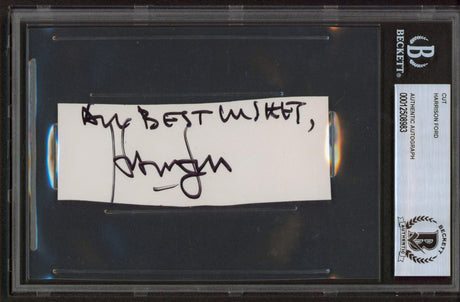 All BEST WISHES,
BECKETT
CUT
HARRISON FORD
AUTHENTIC AUTOGRAPH
00012508983
BECKETT
AUTHENTIC